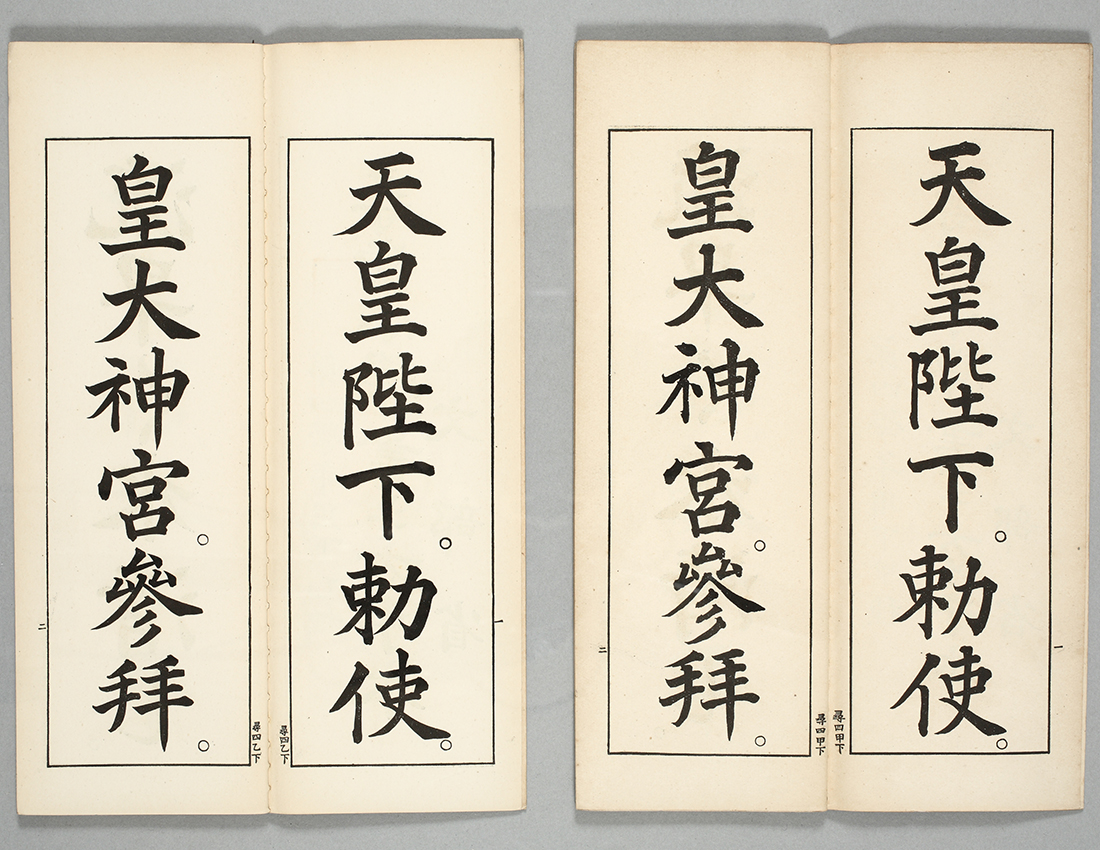 天皇陛下。勅使。
一
尋四甲下
皇大神宮。參拜。
二
尋四甲下
天皇陛下。勅使。
一
尋四乙下
皇大神宮。參拜。
二
尋四乙下